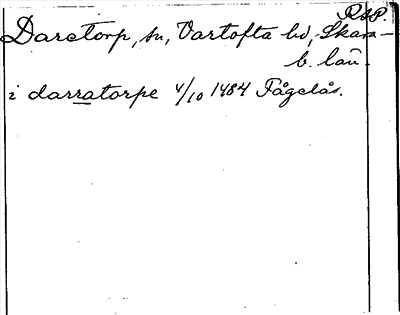 RAP.
Daretorp, sn, Vartofta hd, Skara-
b. län.
i darratorpe 4/10 1484 Fågelås.